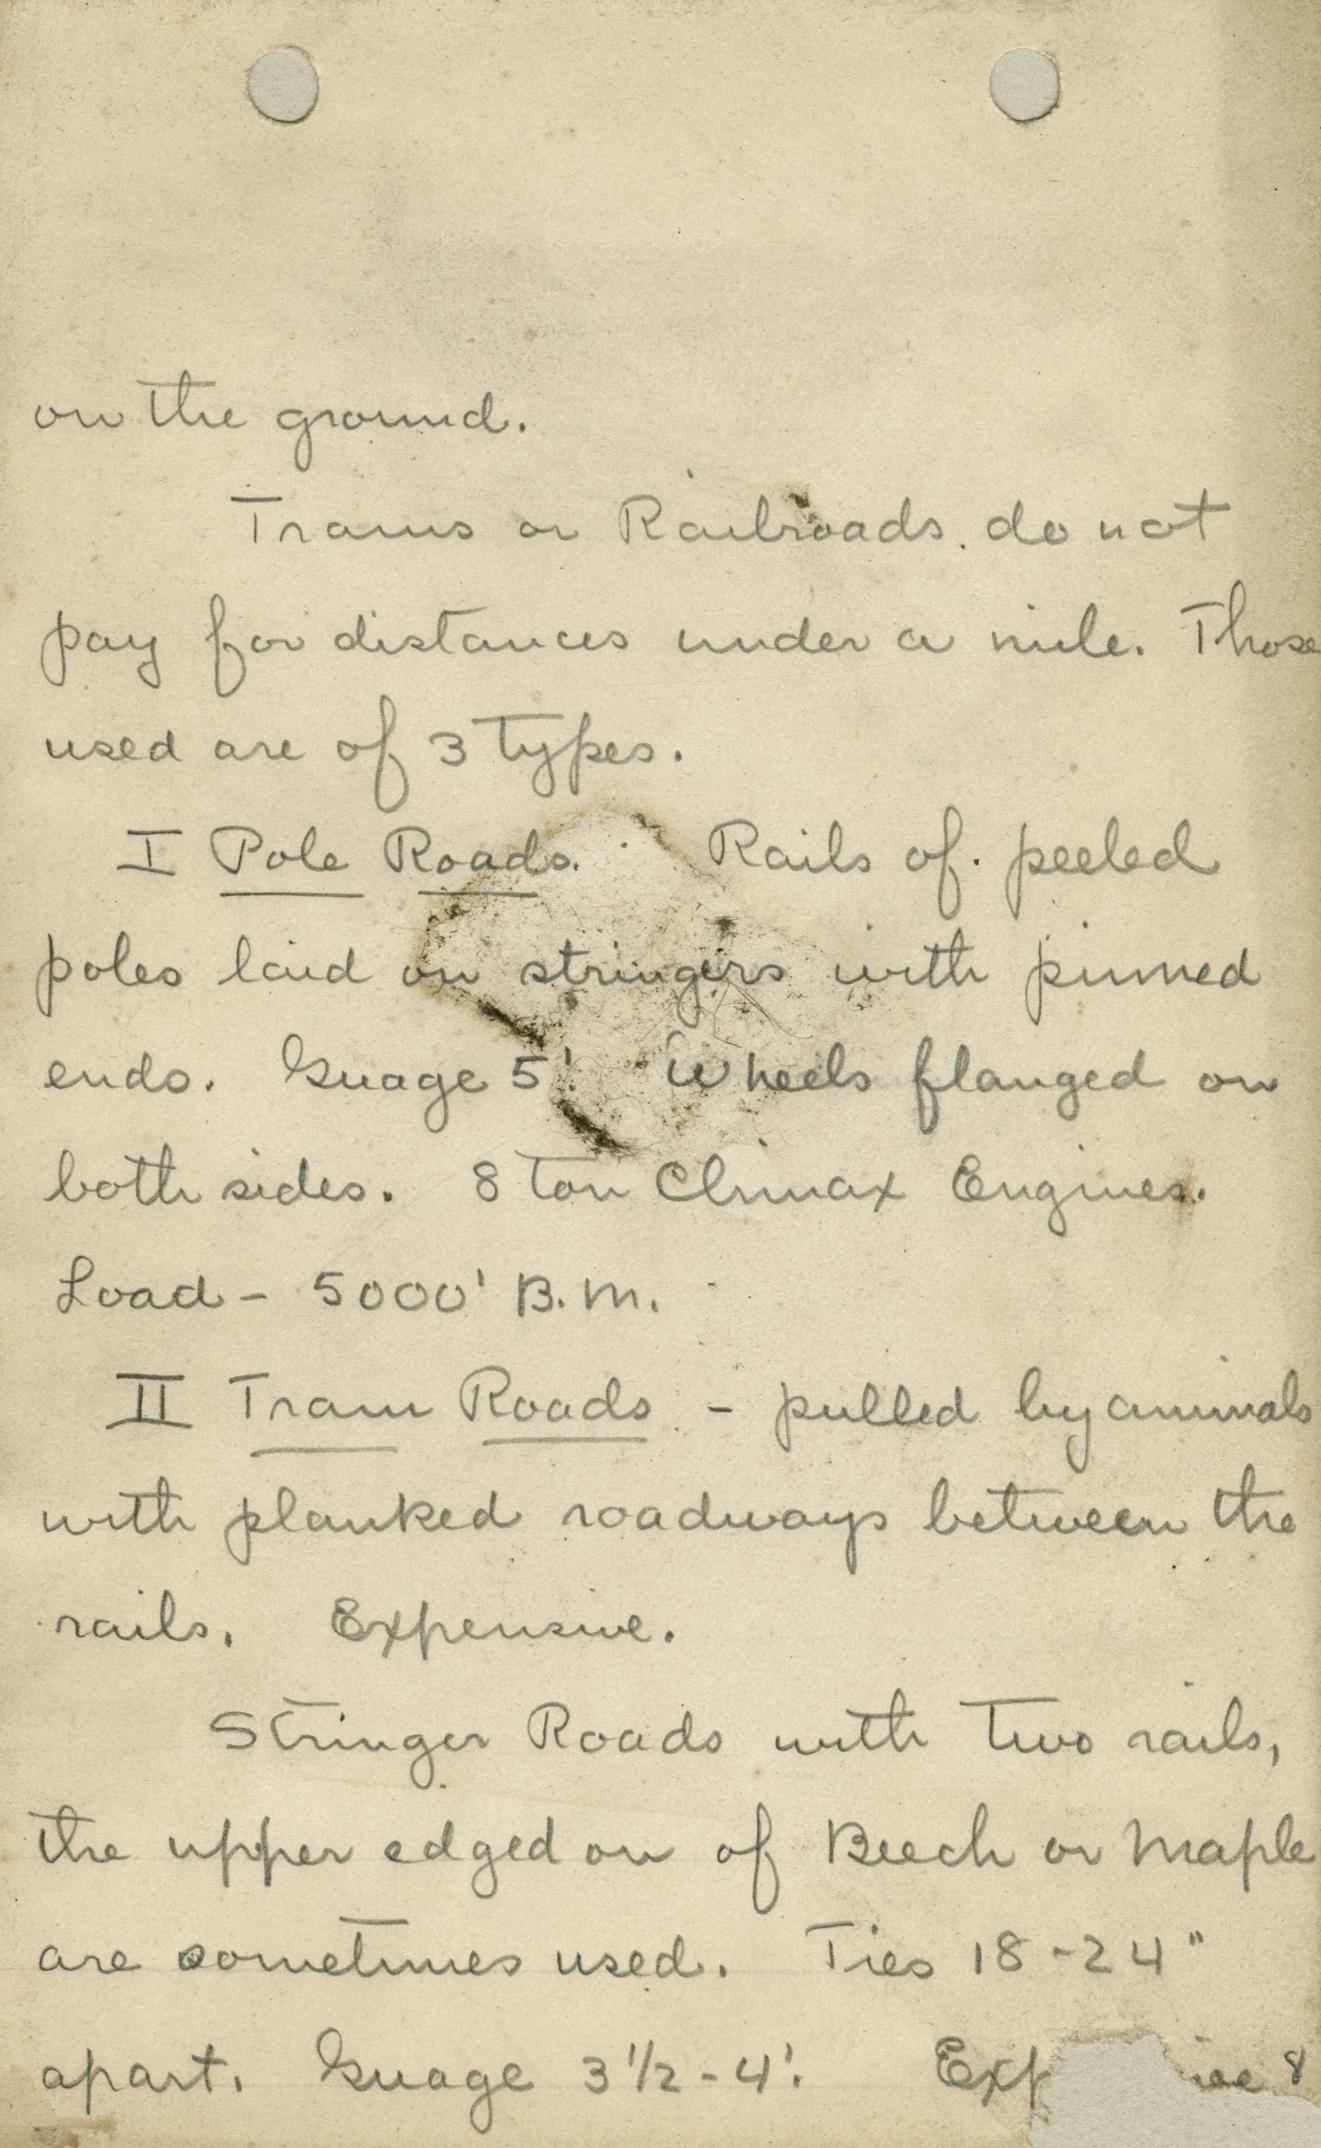 on the ground.
Trams or Railroads do not
pay for distances under a mile. Those
used are of 3 types.
I Pole Roads. Rails of peeled
poles laid on stringers with pinned
ends. Guage 5'. Wheels flanged on
both sides. 8 ton Climax Engines.
Load - 5000' B.M.
II Tram Roads - pulled by animals
with planked roadways between the
rails. Expensive.
Stringer Roads with two rails,
the upper edged on of Beech or Maple
are sometimes used. Ties 18-24"
apart. Guage 3 1/2 - 4'.